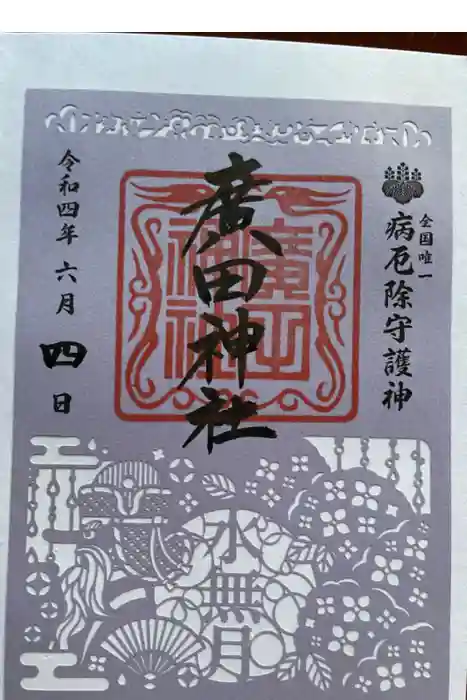 全国唯一
病厄除守護神
廣田神社
廣田神社
令和四年 六月
四日
水無月